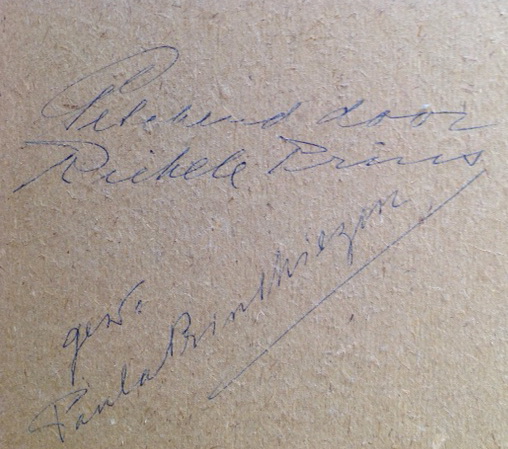 Getekend door
Riekele Prins
gew.
Paula Printhiezen